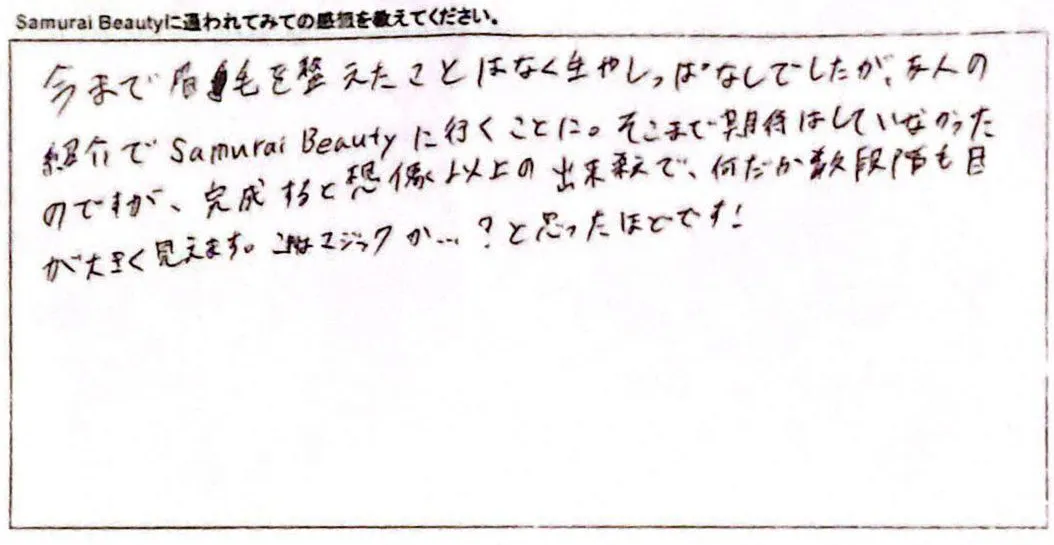 Samurai Beautyに通われてみての感想を教えてください。
今まで眉毛を整えたことはなく生やしっぱなしでしたが、友人の
紹介でSamurai Beautyに行くことに。そこまで期待はしていなかった
のですが、完成すると想像以上の出来栄えで、何だか数段階も目
が大きく見えます。これはマジックか…？と思ったほどです！